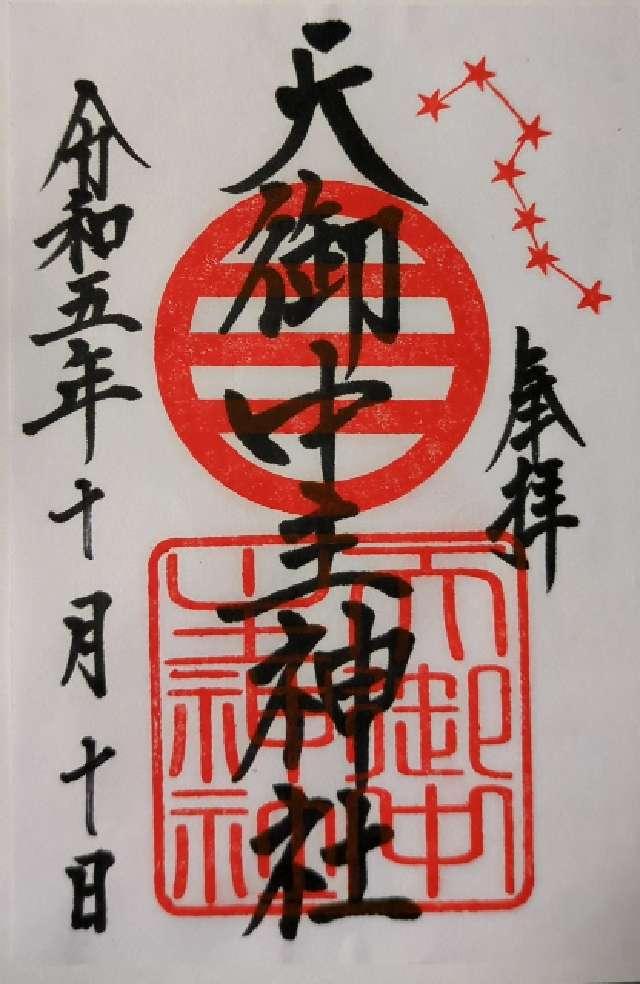 奉拝
天御中主神社
令和五年十月十日
天御中
主神社